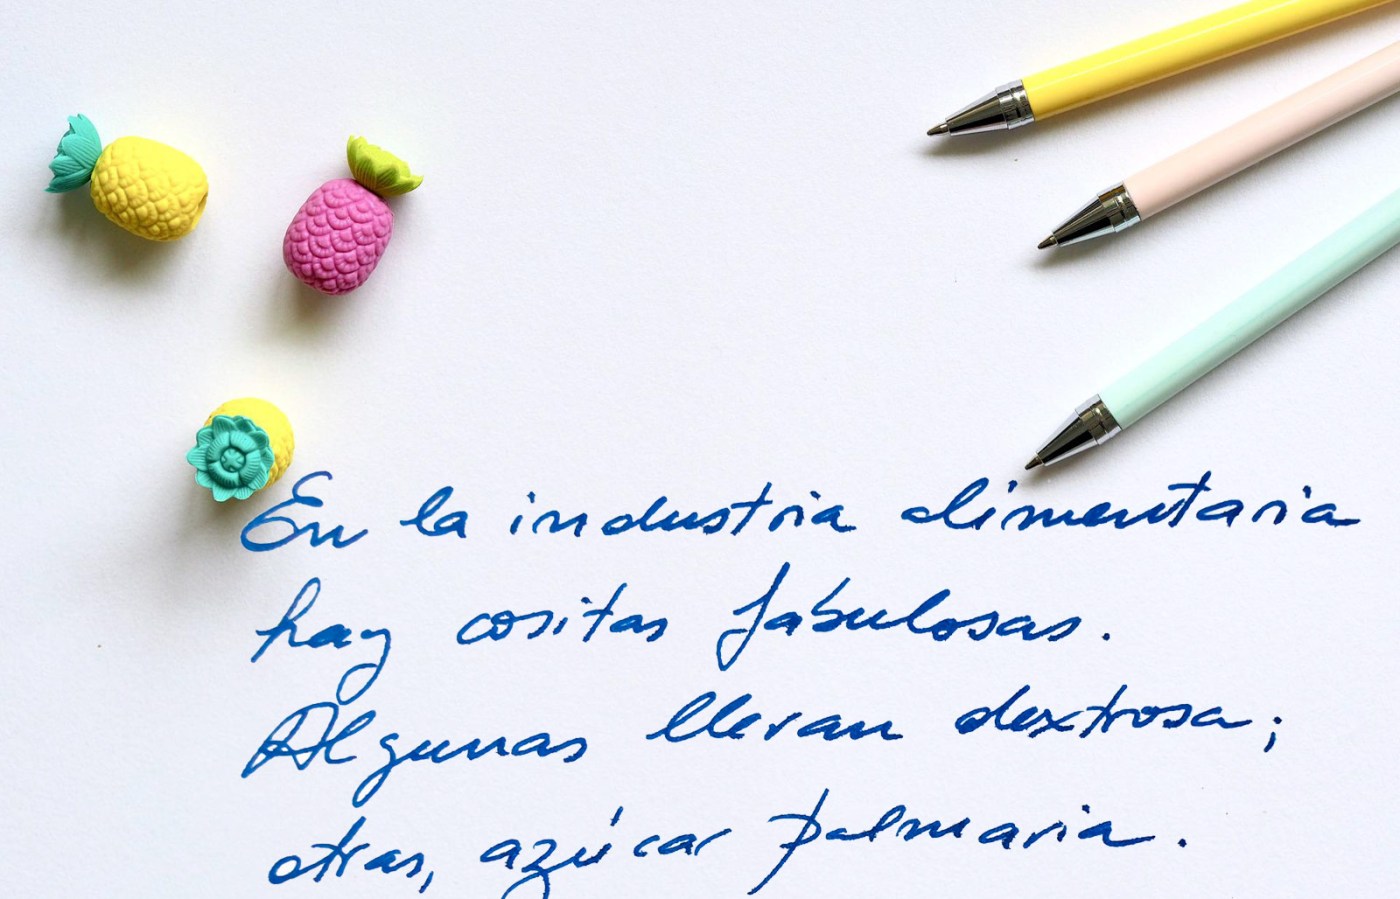 En la industria alimentaria
hay cositas fabulosas.
Algunas llevan dextrosa;
otras, azúcar palmaria.